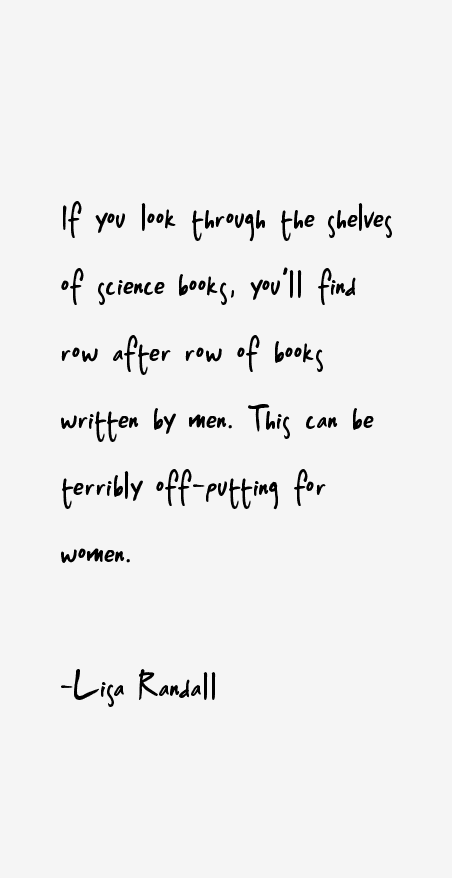 If you look through the shelves
of science books, you'll find
row after row of books
written by men. This can be
terribly off-putting for
women.
-Lisa Randall